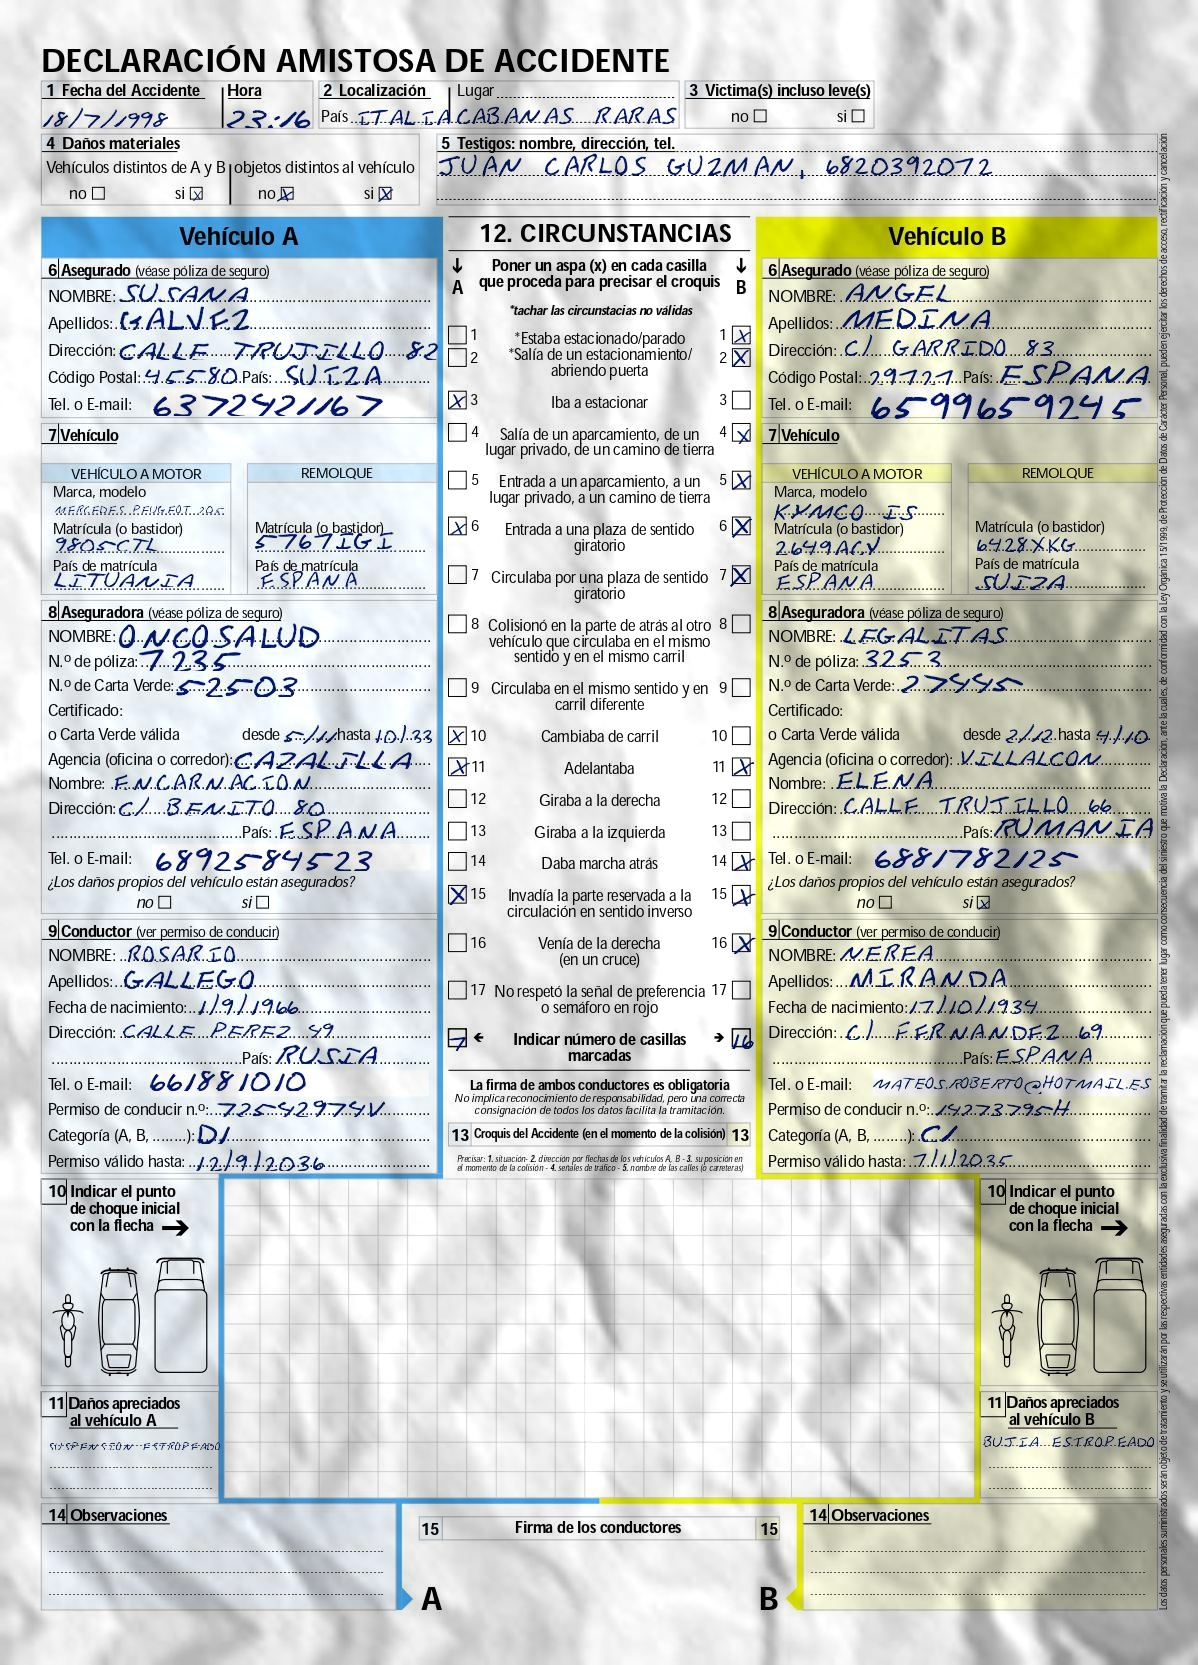 DECLARACIÓN AMISTOSA DE ACCIDENTE
1 Fecha del Accidente Hora 2 Localización Lugar 3 Victima(s) incluso leve(s)
18/7/1998 23:16 País ITALIA CABANAS RARAS no si
4 Daños materiales
Vehículos distintos de A y B objetos distintos al vehículo
no si X no X si X
5 Testigos: nombre, dirección, tel.
JUAN CARLOS GUZMAN, 6820392072
Vehículo A
6 Asegurado (véase póliza de seguro)
NOMBRE: SUSANA
Apellidos: GALVEZ
Dirección: CALLE TRUJILLO 82
Código Postal: 45580 País: SUIZA
Tel. o E-mail: 6372421167
7 Vehículo
VEHÍCULO A MOTOR REMOLQUE
Marca, modelo
MERCEDES PEUGEOT 205
Matrícula (o bastidor) Matrícula (o bastidor)
9805CTL 5767IGI
País de matrícula País de matrícula
LITUANIA ESPANA
8 Aseguradora (véase póliza de seguro)
NOMBRE: ONCOSALUD
N.º de póliza: 7235
N.º de Carta Verde: 52503
Certificado:
o Carta Verde válida desde 5/11/ hasta 10/33
Agencia (oficina o corredor): CAZALILLA
Nombre: ENCARNACION
Dirección: C/ BENITO 80
País: ESPANA
Tel. o E-mail: 6892584523
¿Los daños propios del vehículo están asegurados?
no si
9 Conductor (ver permiso de conducir)
NOMBRE: ROSARIO
Apellidos: GALLEGO
Fecha de nacimiento: 1/9/1966
Dirección: CALLE PEREZ 49
País: RUSIA
Tel. o E-mail: 661881010
Permiso de conducir n.º: 72542974V
Categoría (A, B, ........): D1
Permiso válido hasta: 12/9/2036
10 Indicar el punto
de choque inicial
con la flecha
11 Daños apreciados
al vehículo A
SUSPENSION ESTROPEADO
14 Observaciones
12. CIRCUNSTANCIAS
A Poner un aspa (x) en cada casilla B
que proceda para precisar el croquis
*tachar las circunstacias no válidas
1 *Estaba estacionado/parado 1 X
2 *Salía de un estacionamiento/ 2 X
abriendo puerta
X 3 Iba a estacionar 3
4 Salía de un aparcamiento, de un 4 X
lugar privado, de un camino de tierra
5 Entrada a un aparcamiento, a un 5 X
lugar privado, a un camino de tierra
X 6 Entrada a una plaza de sentido 6 X
giratorio
7 Circulaba por una plaza de sentido 7 X
giratorio
8 Colisionó en la parte de atrás al otro 8
vehículo que circulaba en el mismo
sentido y en el mismo carril
9 Circulaba en el mismo sentido y en 9
carril diferente
X 10 Cambiaba de carril 10
X 11 Adelantaba 11 X
12 Giraba a la derecha 12
13 Giraba a la izquierda 13
14 Daba marcha atrás 14 X
X 15 Invadía la parte reservada a la 15 X
circulación en sentido inverso
16 Venía de la derecha 16 X
(en un cruce)
17 No respetó la señal de preferencia 17
o semáforo en rojo
7 Indicar número de casillas 16
marcadas
La firma de ambos conductores es obligatoria
No implica reconocimiento de responsabilidad, pero una correcta
consignación de todos los datos facilita la tramitación.
13 Croquis del Accidente (en el momento de la colisión) 13
Precisar: 1. situación- 2. dirección por flechas de los vehículos A, B - 3. su posición en
el momento de la colisión - 4. señales de tráfico - 5. nombre de las calles (o carreteras)
15 Firma de los conductores 15
A B
Vehículo B
6 Asegurado (véase póliza de seguro)
NOMBRE: ANGEL
Apellidos: MEDINA
Dirección: C/ GARRIDO 83
Código Postal: 29727 País: ESPANA
Tel. o E-mail: 6599659245
7 Vehículo
VEHÍCULO A MOTOR REMOLQUE
Marca, modelo
KYMCO IS
Matrícula (o bastidor) Matrícula (o bastidor)
2649ACV 6428XKG
País de matrícula País de matrícula
ESPANA SUIZA
8 Aseguradora (véase póliza de seguro)
NOMBRE: LEGALITAS
N.º de póliza: 3253
N.º de Carta Verde: 27445
Certificado:
o Carta Verde válida desde 2/12 hasta 4/10
Agencia (oficina o corredor): VILLALCON
Nombre: ELENA
Dirección: CALLE TRUJILLO 66
País: RUMANIA
Tel. o E-mail: 6881782125
¿Los daños propios del vehículo están asegurados?
no si X
9 Conductor (ver permiso de conducir)
NOMBRE: NEREA
Apellidos: MIRANDA
Fecha de nacimiento: 17/10/1934
Dirección: C/ FERNANDEZ 69
País: ESPANA
Tel. o E-mail: MATEOS.ROBERTO@HOTMAIL.ES
Permiso de conducir n.º: 14273795H
Categoría (A, B, ........): C1
Permiso válido hasta: 7/1/2035
10 Indicar el punto
de choque inicial
con la flecha
11 Daños apreciados
al vehículo B
BUJIA ESTROPEADO
14 Observaciones